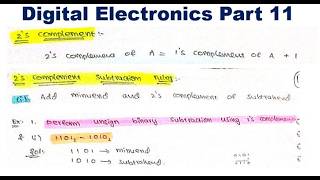 Digital Electronics Part 11
2's complement :-
2's complement of A = 1's complement of A + 1
2's complement subtraction rules :-
(i) Add minuend and 2's complement of subtrahend
Ex: 1. Perform unsign binary subtraction using 1's complemen
(i) 1101₂ - 1010₂
Sol: 1101 → minuend
1010 → subtrahend.
0101